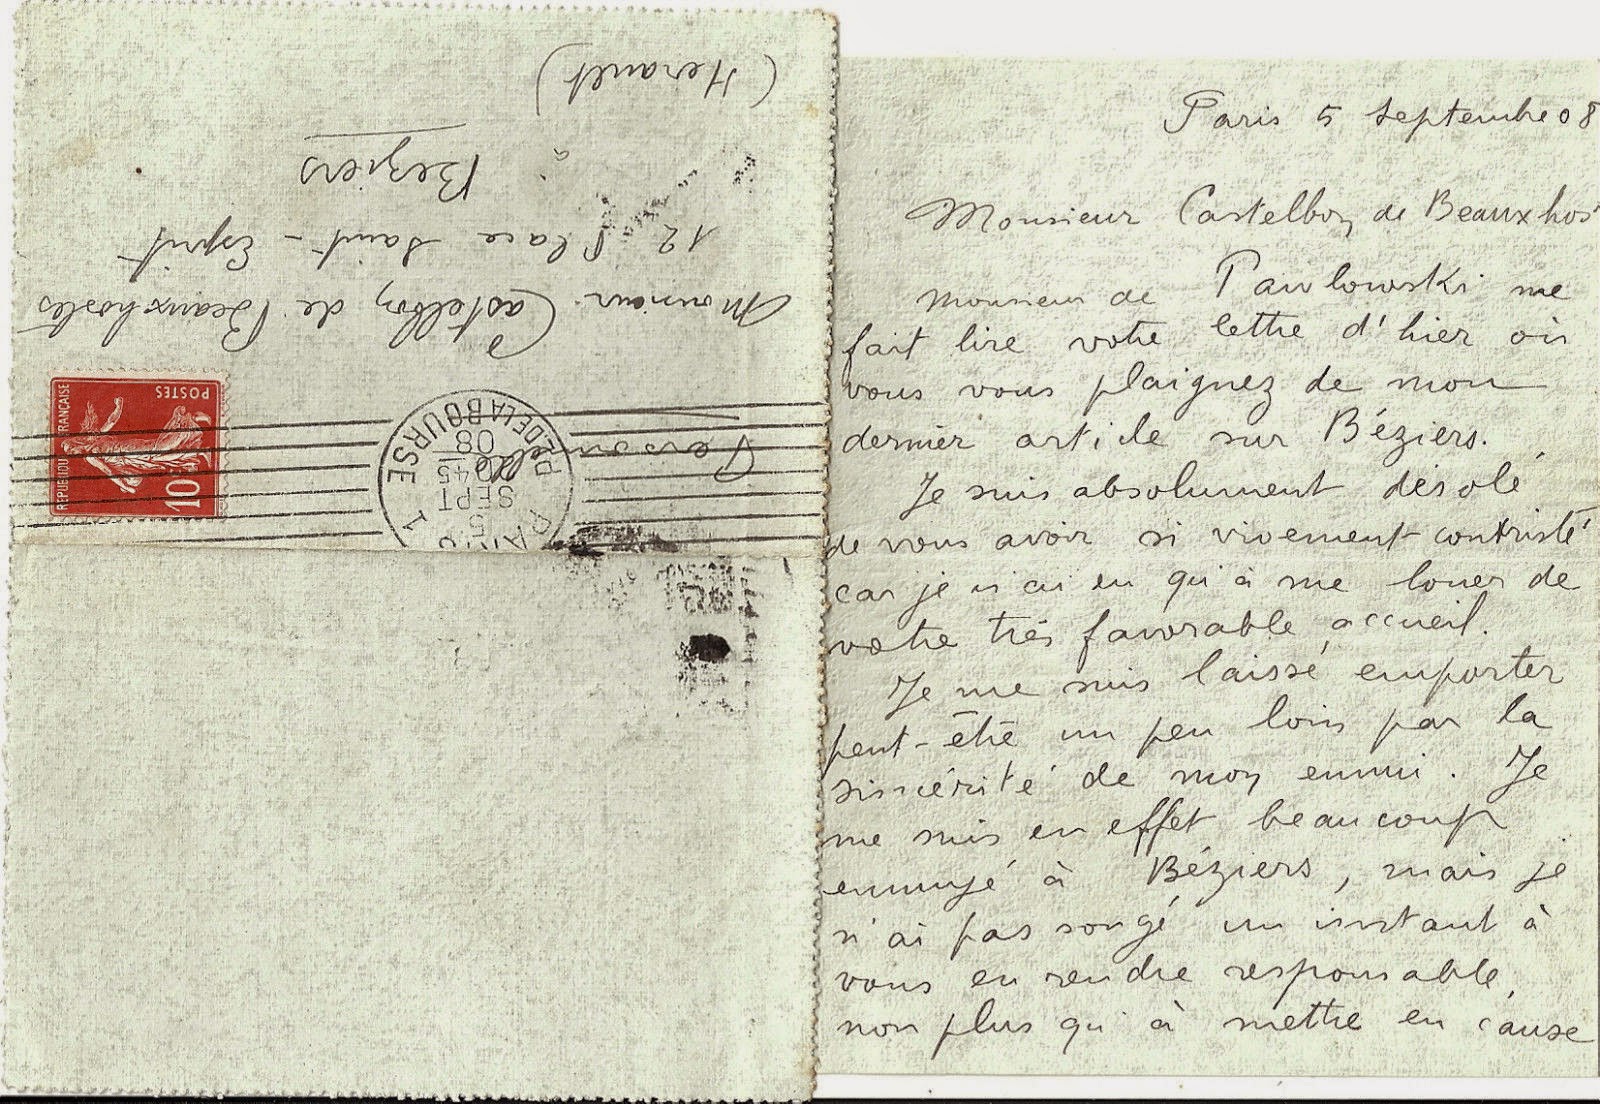 Personnelle
Monsieur Castelbon de Beauxhostes
12 Place Saint-Esprit
à
Beziers
(Herault)
REPUBLIQUE FRANÇAISE
POSTES
10
PARIS 1
R. DE LA BOURSE
5
SEPT
08
Paris 5 septembre 08
Monsieur Castelbon de Beauxhos
Monsieur de Pawlowski me
fait lire votre lettre d'hier où
vous vous plaignez de mon
dernier article sur Béziers.
Je suis absolument désolé
de vous avoir si vivement contristé
car je n'ai eu qu'à me louer de
votre très favorable accueil.
Je me suis laissé emporter
peut-être un peu loin par la
sincérité de mon ennui. Je
me suis en effet beaucoup
ennuyé à Béziers, mais je
n'ai pas songé un instant à
vous en rendre responsable,
non plus qu'à mettre en cause